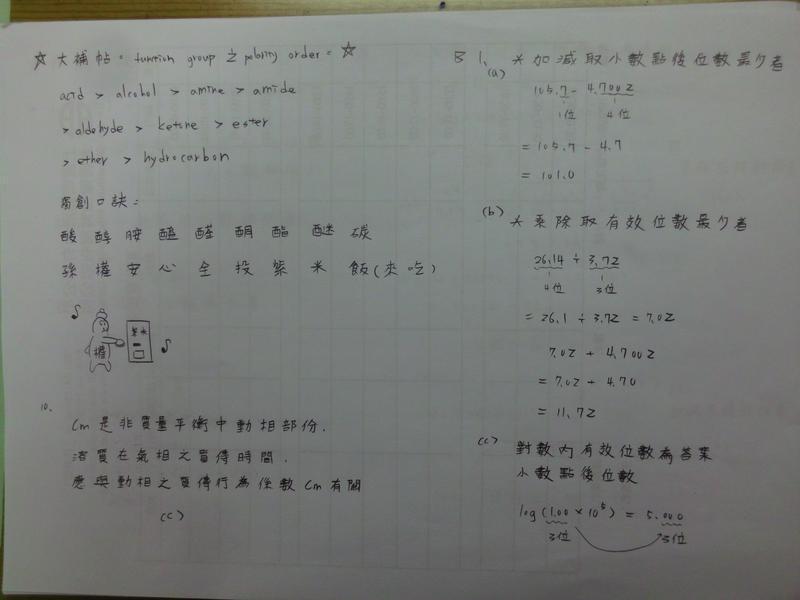 ☆ 大補帖 = function group 之 polarity order = ☆
acid > alcohol > amine > amide
> aldehyde > ketone > ester
> ether > hydrocarbon
獨創口訣 =
酸 醇 胺 醯 醛 酮 酯 醚 碳
孫 權 安 心 全 投 紫 米 飯(來吃)
權 紫米
10.
Cm 是非質量平衡中動相部份.
溶質在氣相之質傳時間.
應與動相之質傳行為係數 Cm 有關
(C)
B 1. *加減取小數點後位數最少者
(a)
105.7 - 4.7002
1位 4位
= 105.7 - 4.7
= 101.0
(b) *乘除取有效位數最少者
26.14 ÷ 3.72
4位 3位
= 26.1 ÷ 3.72 = 7.02
7.02 + 4.7002
= 7.02 + 4.70
= 11.72
(c) 對數內有效位數為答案
小數點後位數
log(1.00 × 10⁵) = 5.000
3位 3位